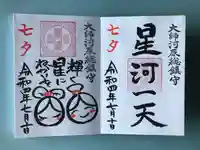 大師河原総鎮守
星河一天
七夕
令和四年七月十日
大師河原総鎮守
輝く
星に
七夕
令和四年七月十日